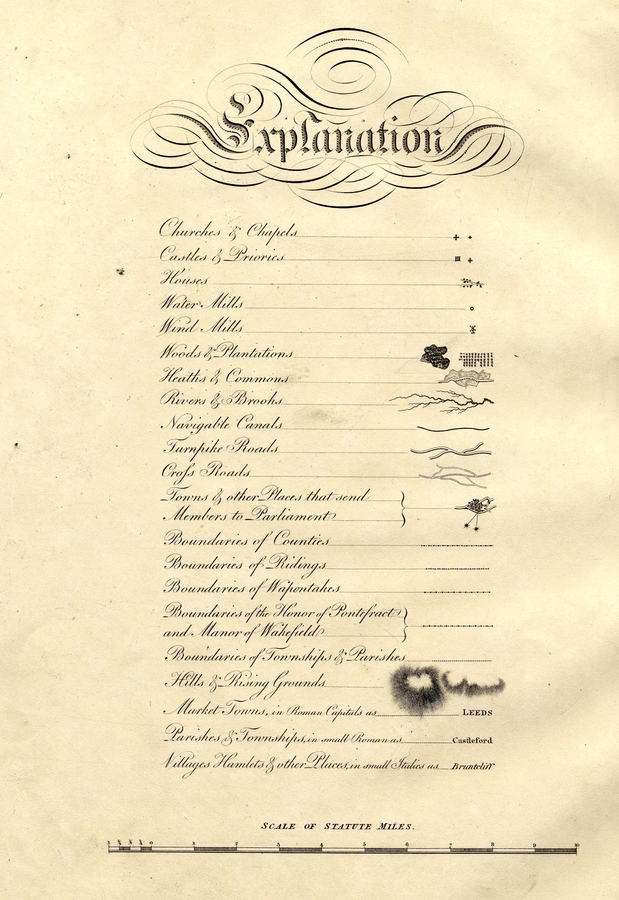 Explanation
Churches & Chapels
Castles & Priories
Houses
Water Mills
Wind Mills
Woods & Plantations
Heaths & Commons
Rivers & Brooks
Navigable Canals
Turnpike Roads
Croſs Roads
Towns & other Places that send
Members to Parliament
Boundaries of Counties
Boundaries of Ridings
Boundaries of Wapontakes
Boundaries of the Honor of Pontefract
and Manor of Wakefield
Boundaries of Townships & Parishes
Hills & Rising Grounds
Market Towns, in Roman Capitals as LEEDS
Parishes, & Townships, in small Roman as Castleford
Villages Hamlets & other Places, in small Italics as Bruntcliff
SCALE OF STATUTE MILES.
1 ¾ ½ ¼ 0 1 2 3 4 5 6 7 8 9 10